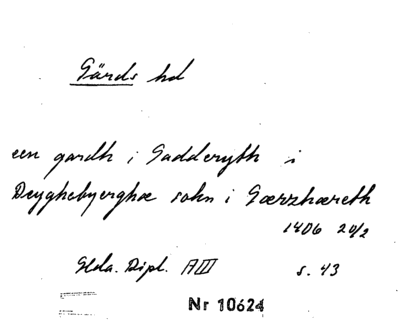 Gärds hd
een gardh i Gadderyth i
Deyghebyerghæ sokn i Gærzhæreth
1406 20/2
Glda. Dipl. A III s. 43
Nr 10624